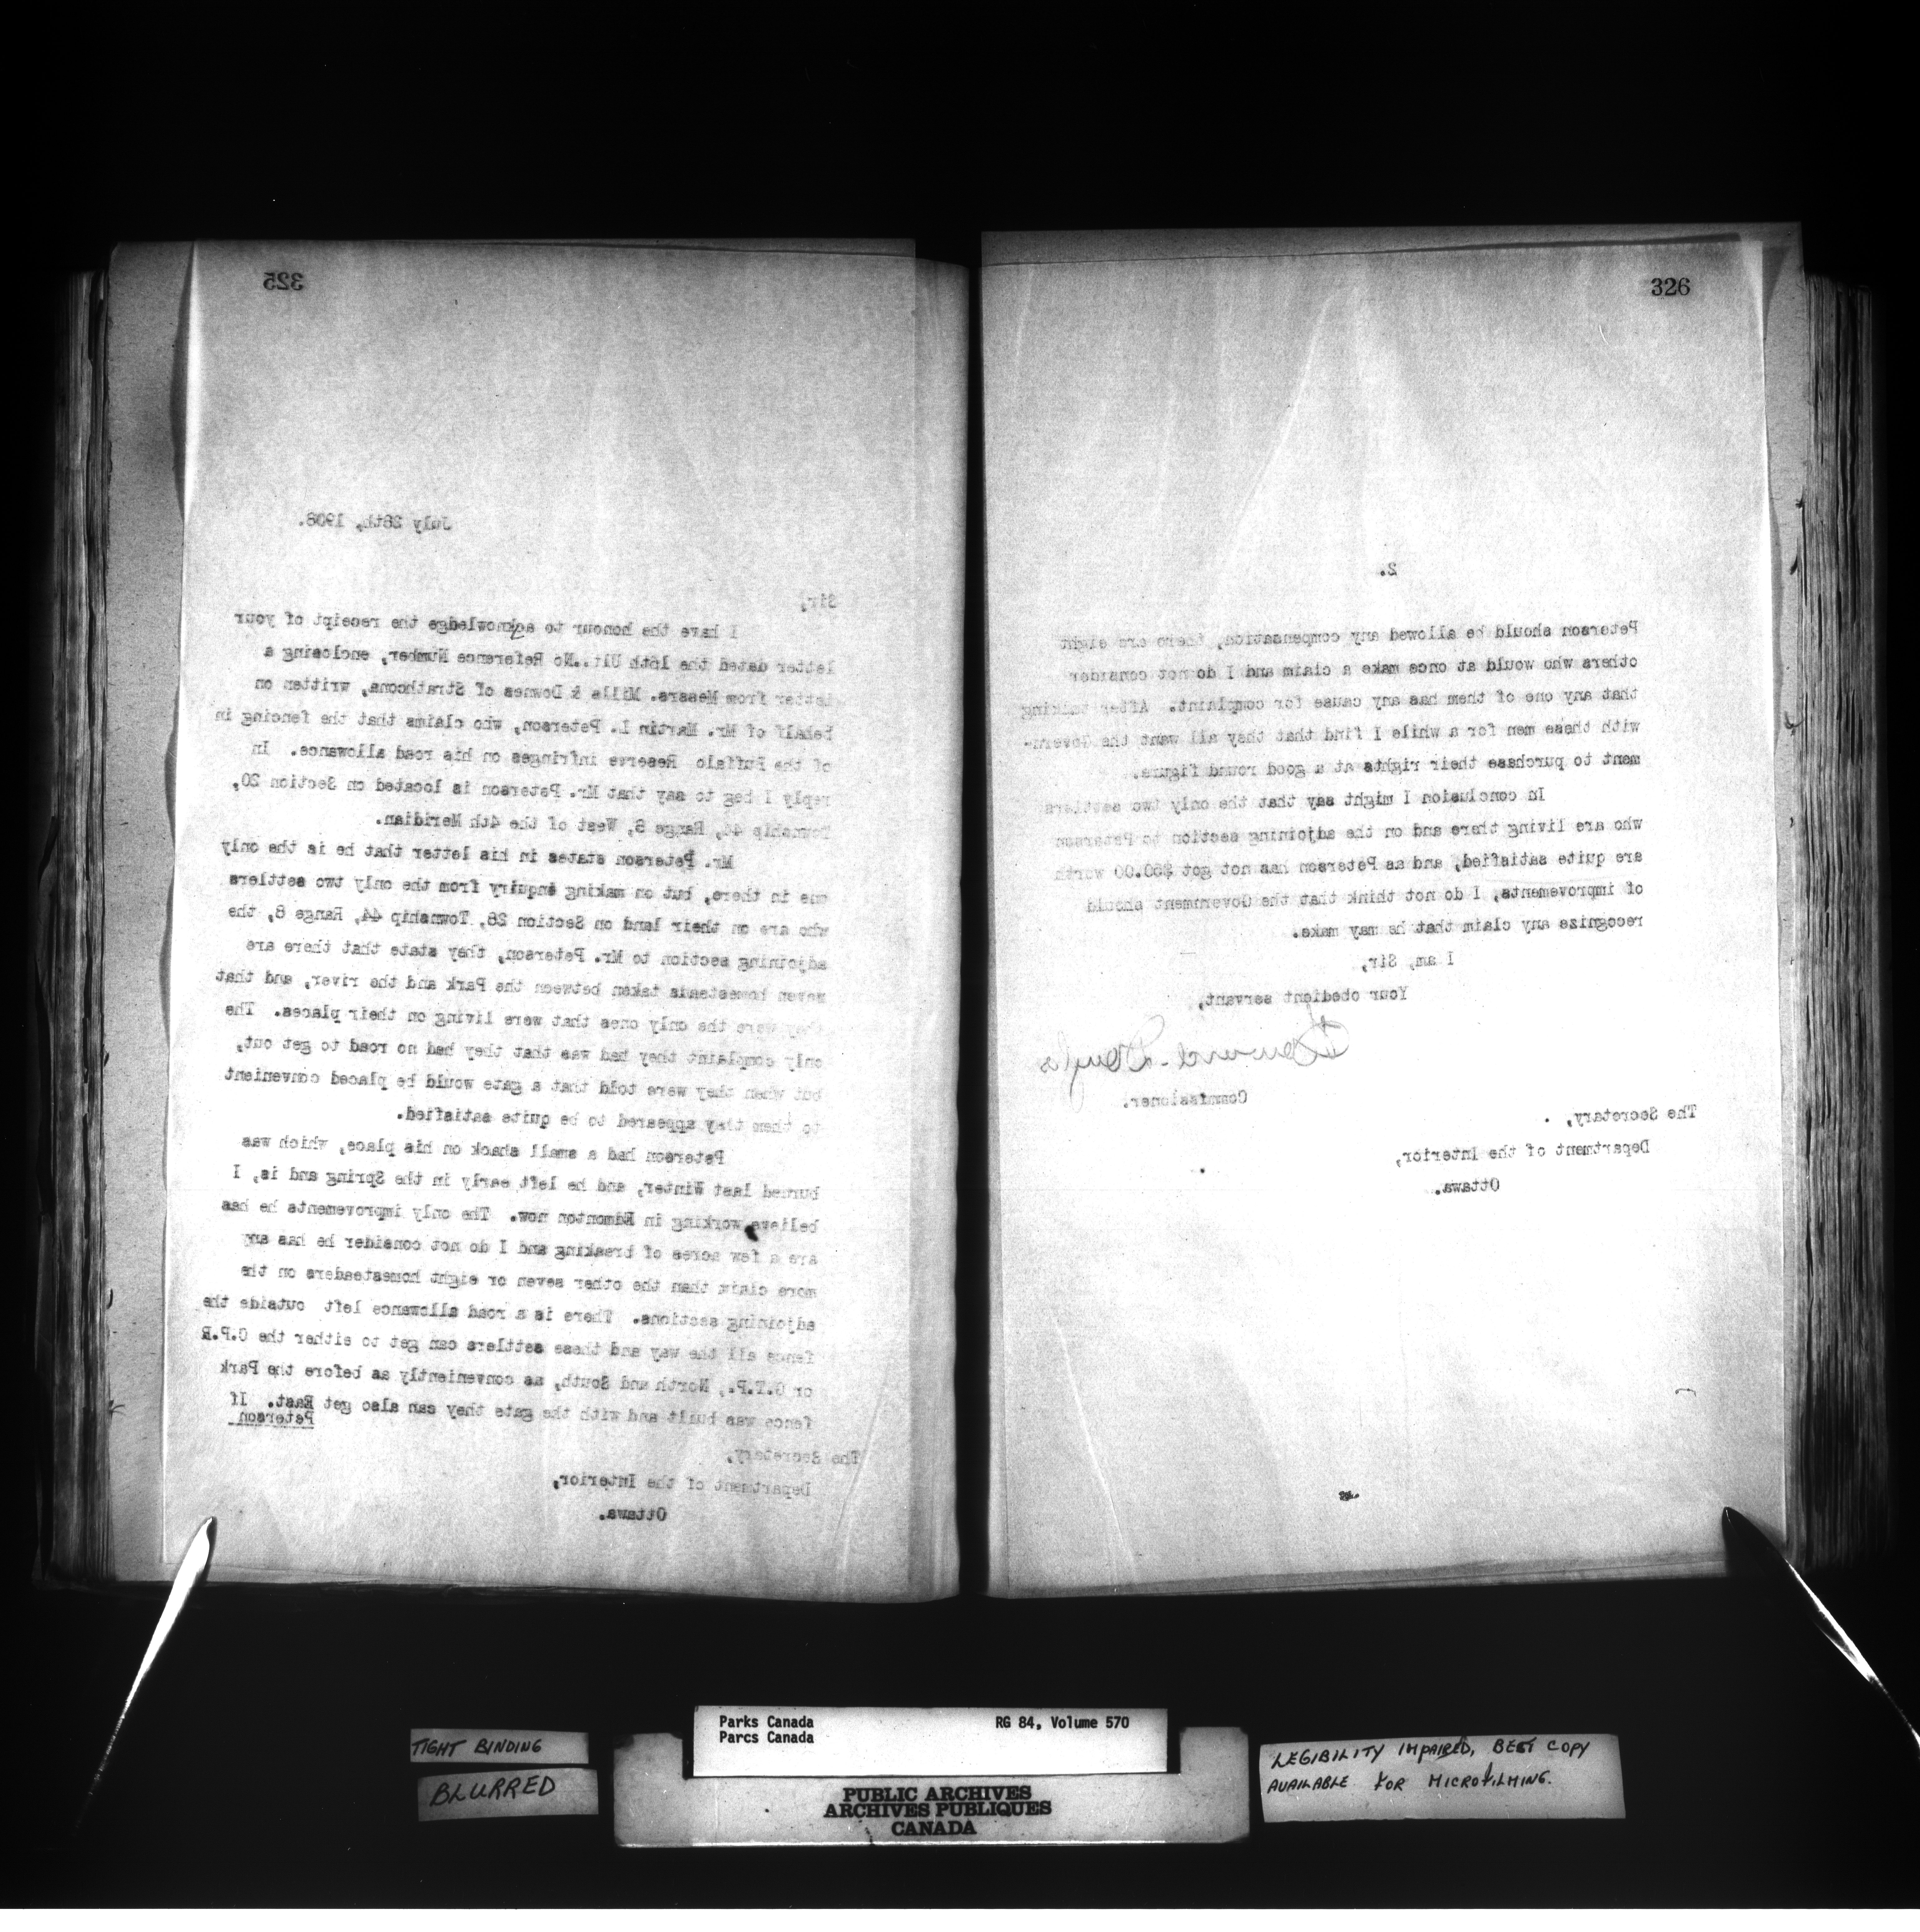 325
July 28th, 1908.
Sir,
I have the honour to acknowledge the receipt of your
letter dated the 16th Ult..No Reference Number, enclosing a
letter from Messrs. Mills & Downes of Strathcona, written on
behalf of Mr. Martin L. Peterson, who claims that the fencing in
of the Buffalo Reserve infringes on his road allowance. In
reply I beg to say that Mr. Peterson is located on Section 20,
Township 44, Range 8, West of the 4th Meridian.
Mr. Peterson states in his letter that he is the only
one in there, but on making enquiry from the only two settlers
who are on their land on Section 28, Township 44, Range 8, the
adjoining section to Mr. Peterson, they state that there are
seven homesteads taken between the Park and the river, and that
they were the only ones that were living on their places. The
only complaint they had was that they had no road to get out,
but when they were told that a gate would be placed convenient
to them they appeared to be quite satisfied.
Peterson had a small shack on his place, which was
burned last Winter, and he left early in the Spring and is, I
believe working in Edmonton now. The only improvements he has
are a few acres of breaking and I do not consider he has any
more claim than the other seven or eight homesteaders on the
adjoining sections. There is a road allowance left outside the
fence all the way and these settlers can get to either the C.P.R
or G.T.P., North and South, as conveniently as before the Park
fence was built and with the gate they can also get East. If
Peterson
The Secretary,
Department of the Interior,
Ottawa.
326
2.
Peterson should be allowed any compensation, there are eight
others who would at once make a claim and I do not consider
that any one of them has any cause for complaint. After talking
with these men for a while I find that they all want the Govern-
ment to purchase their rights at a good round figure.
In conclusion I might say that the only two settlers
who are living there and on the adjoining section to Peterson
are quite satisfied, and as Peterson has not got $50.00 worth
of improvements, I do not think that the Government should
recognize any claim that he may make.
I am, Sir,
Your obedient servant,
Howard Douglas
Commissioner.
The Secretary,
Department of the Interior,
Ottawa.
TIGHT BINDING
BLURRED
Parks Canada RG 84, Volume 570
Parcs Canada
PUBLIC ARCHIVES
ARCHIVES PUBLIQUES
CANADA
LEGIBILITY IMPAIRED, BEST COPY
AVAILABLE FOR MICROFILMING.